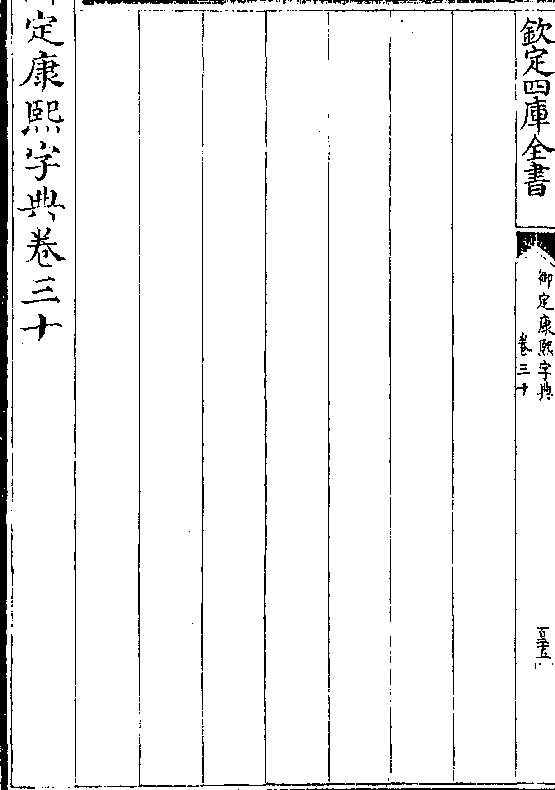 欽定四庫全書
御定康熙字典
卷三十
定康熙字典卷三十